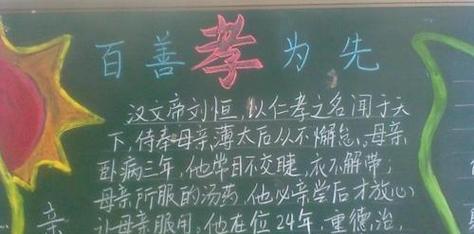 百善孝为先
汉文帝刘恒,以仁孝之名闻于天
下,侍奉母亲薄太后从不懈怠。母亲
卧病三年,他常目不交睫,衣不解带;
母亲所服的汤药,他必亲尝后才放心
让母亲服用。他在位24年,重德治,
亲